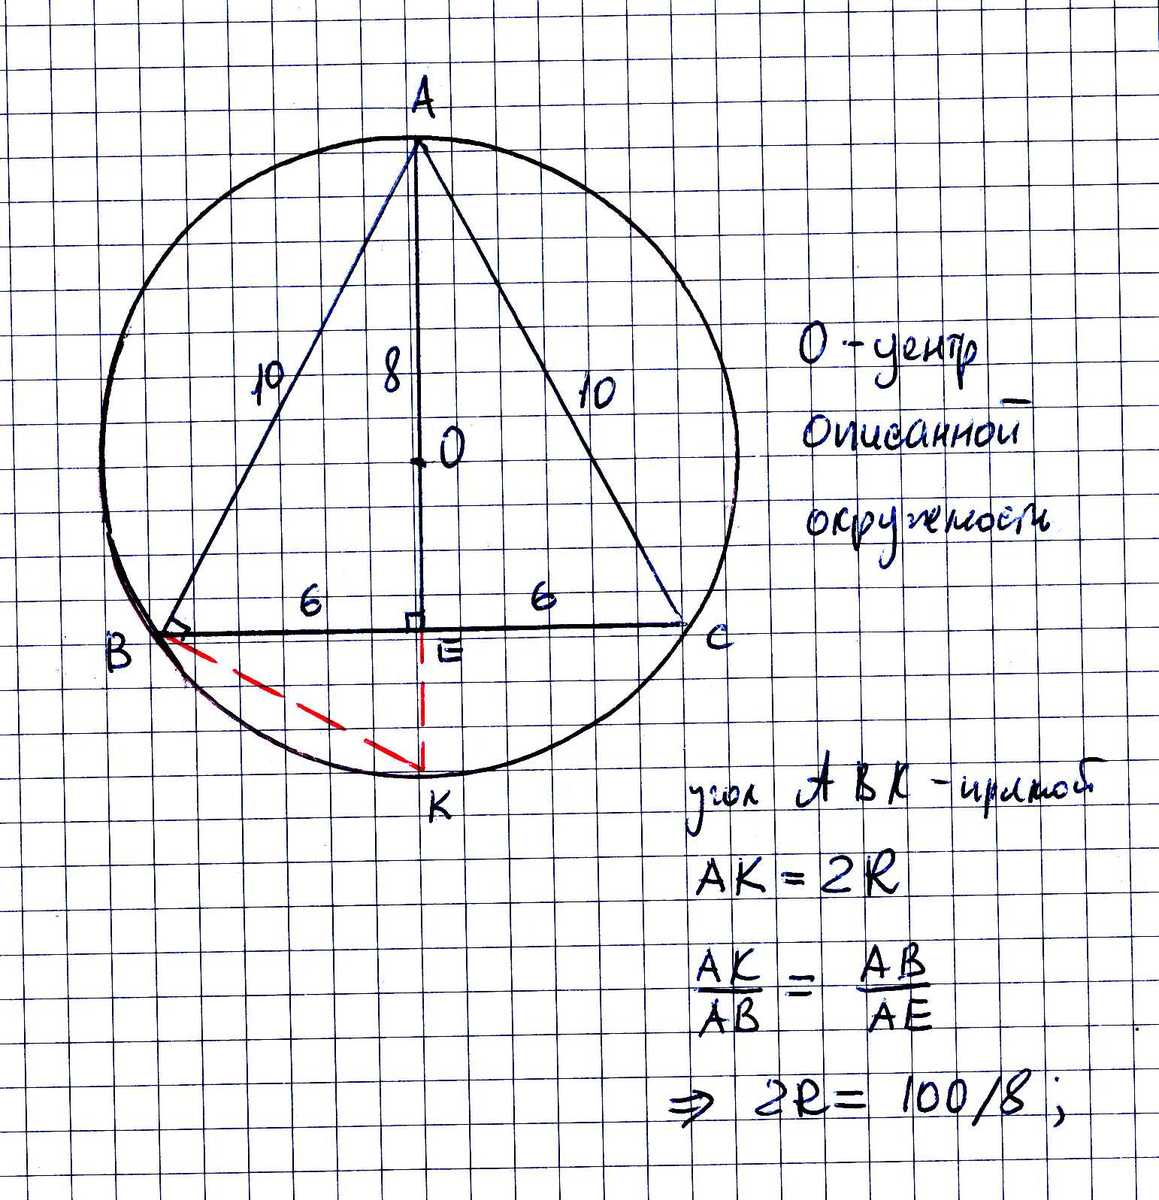 A
10
8
10
O
O - центр
описанной
окружность
6
6
B
E
C
K
угол ABK - прямой
AK = 2R
AK/AB = AB/AE
⇒ 2R = 100/8 ;